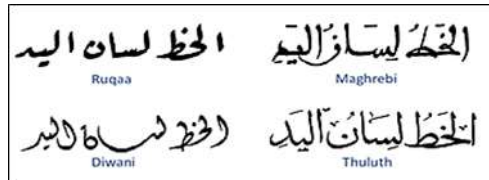 الخط لسان اليد
Ruqaa
الخَطُ لِسَانُ اليَدِ
Maghrebi
الخط لسان اليد
Diwani
الخَطُ لِسَانُ اليَدِ
Thuluth